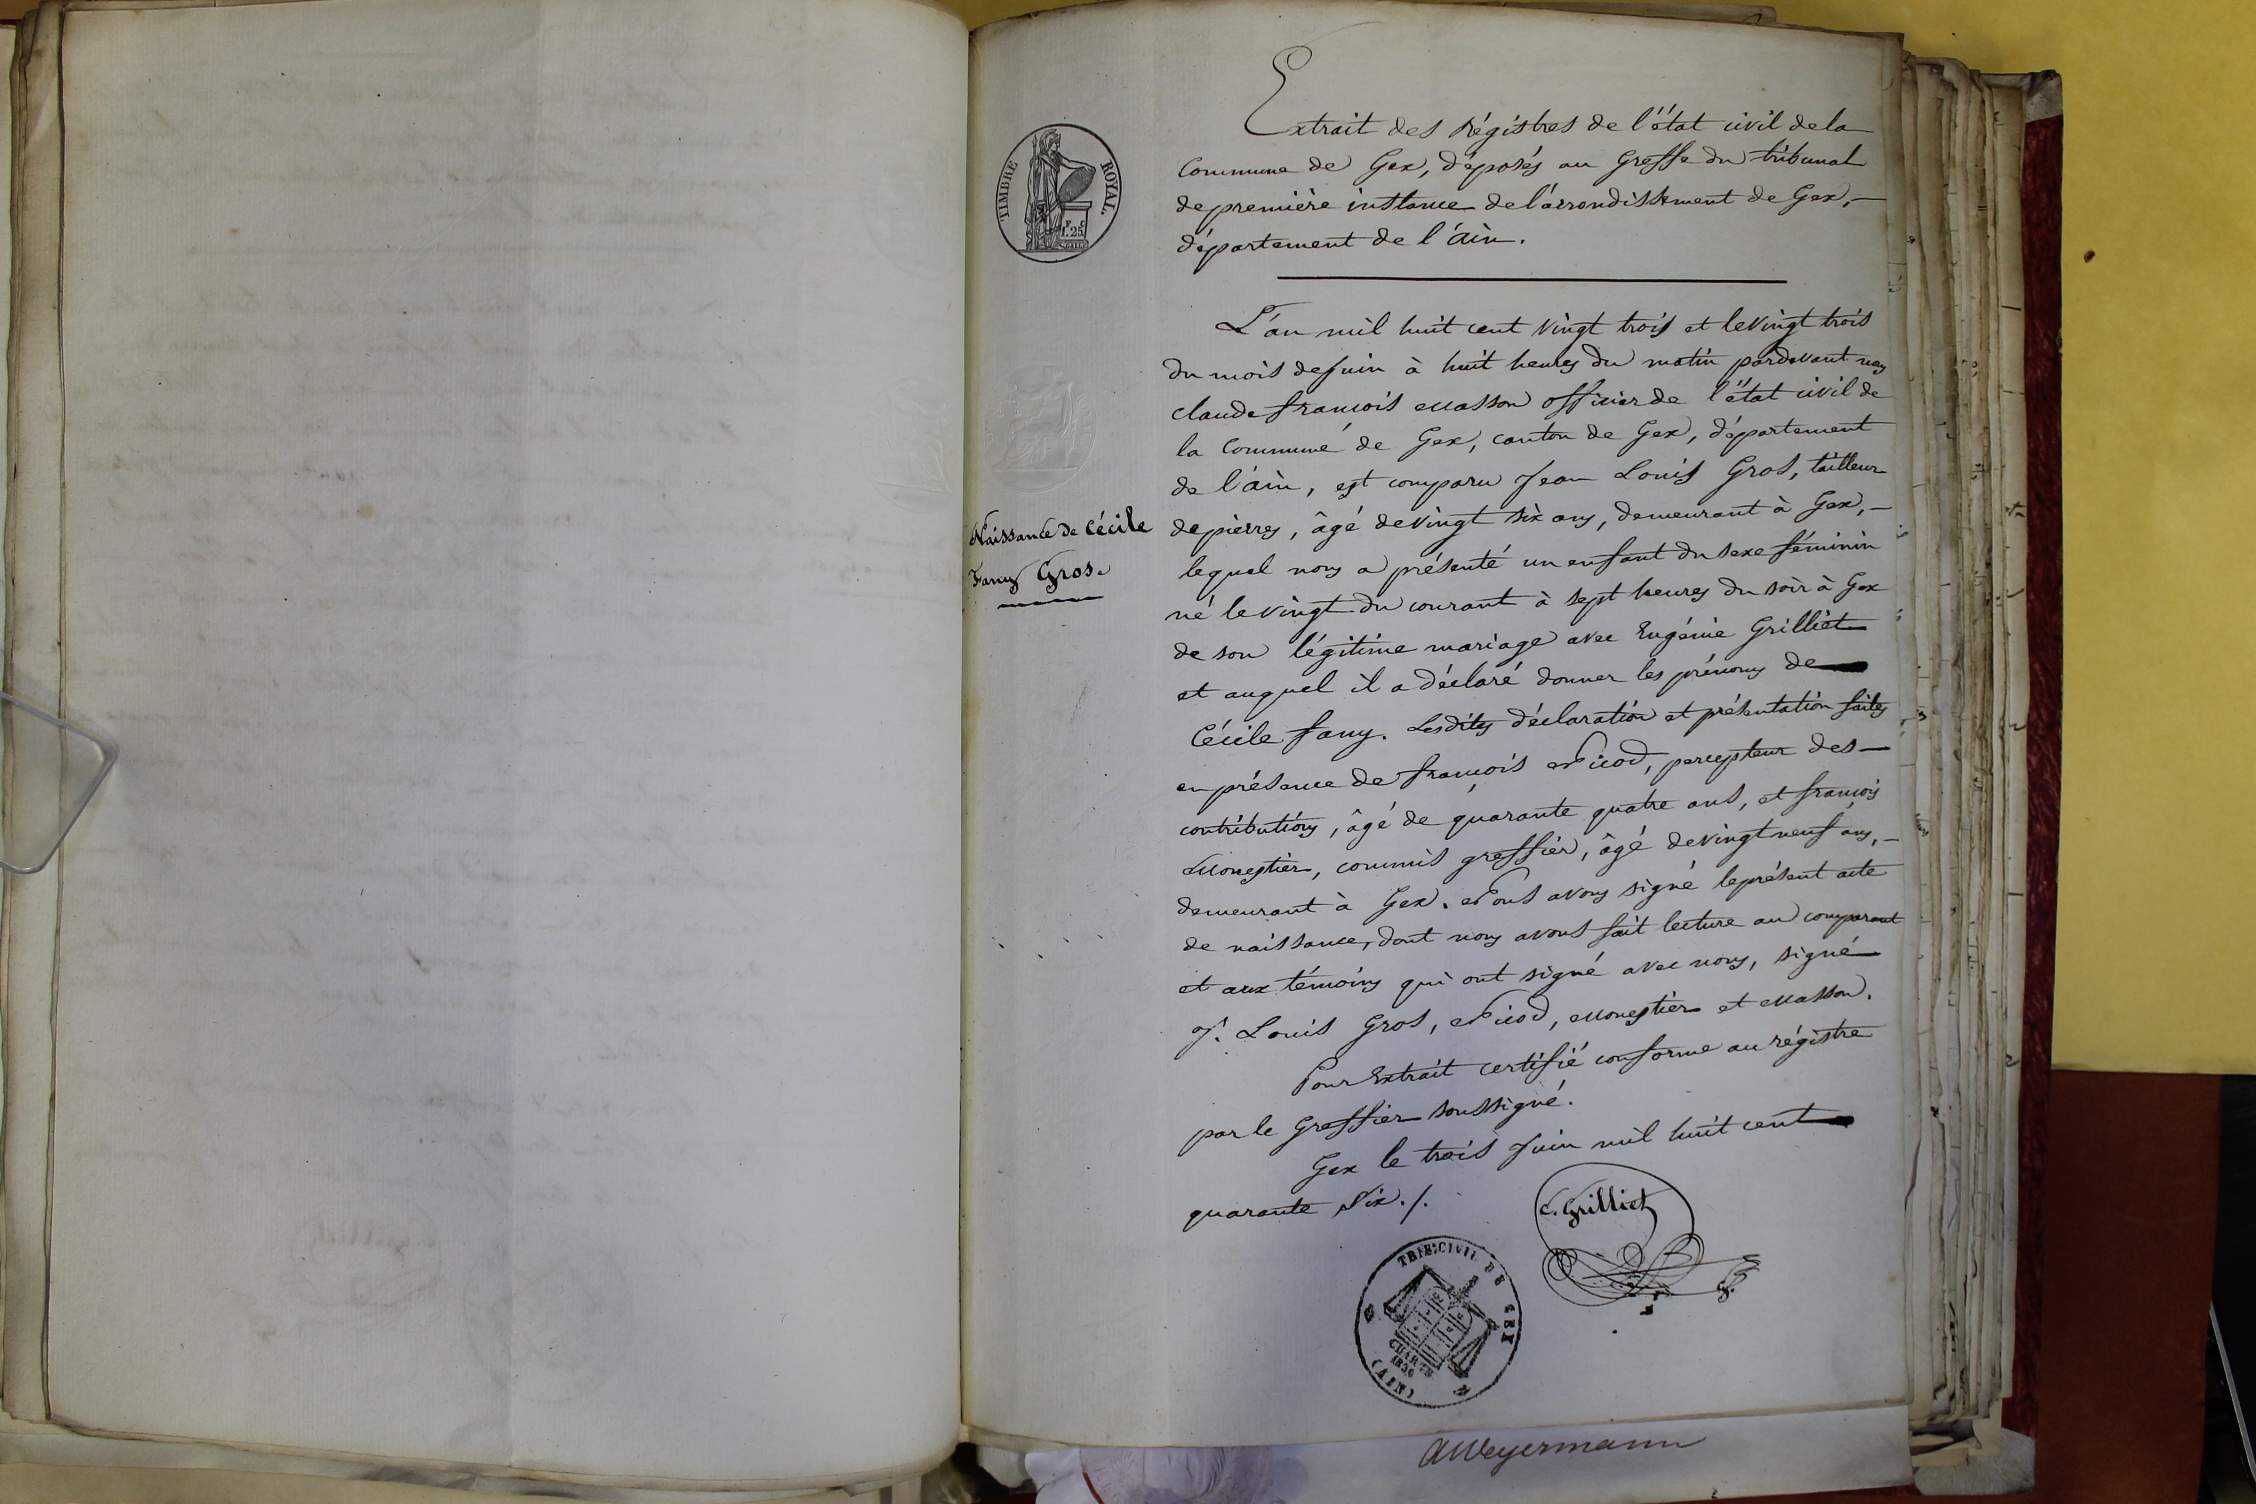 Extrait des régistres de l'état civil de la
Commune de Gex, déposés au Greffe du tribunal
de première instance de l'arrondissement de Gex,
département de l'ain.
TIMBRE ROYAL.
1.25
L'an mil huit cent vingt trois et le vingt trois
du mois de juin à huit heures du matin pardevant nous
claude françois Masson officier de l'état civil de
la Commune de Gex, canton de Gex, département
de l'ain, est comparu Jean Louis Gros, tailleur
de pierres, âgé de vingt six ans, demeurant à Gex,
lequel nous a présenté un enfant du sexe féminin
Naissance de Cécile
Fany Gros.
né le vingt du courant à sept heures du soir à Gex
de son légitime mariage avec Eugénie Grilliet
et auquel il a déclaré donner les prénoms de
Cécile fany. Lesdites déclaration et présentation faites
en présence de françois Nicod, percepteur des
contributions, âgé de quarante quatre ans, et françois
Monestier, commis greffier, âgé de vingt neuf ans,
demeurant à Gex. Nous avons signé le présent acte
de naissance, dont nous avons fait lecture au comparant
et aux témoins qui ont signé avec nous, signé
J. Louis Gros, Nicod, Monestier et Masson.
Pour Extrait certifié conforme au régistre
par le Greffier soussigné.
Gex le trois Juin mil huit cent
quarante Six ./.
C. Grilliet
TRIB. CIVIL DE GEX
CHARTE
1830
(AIN)
AWeyermann